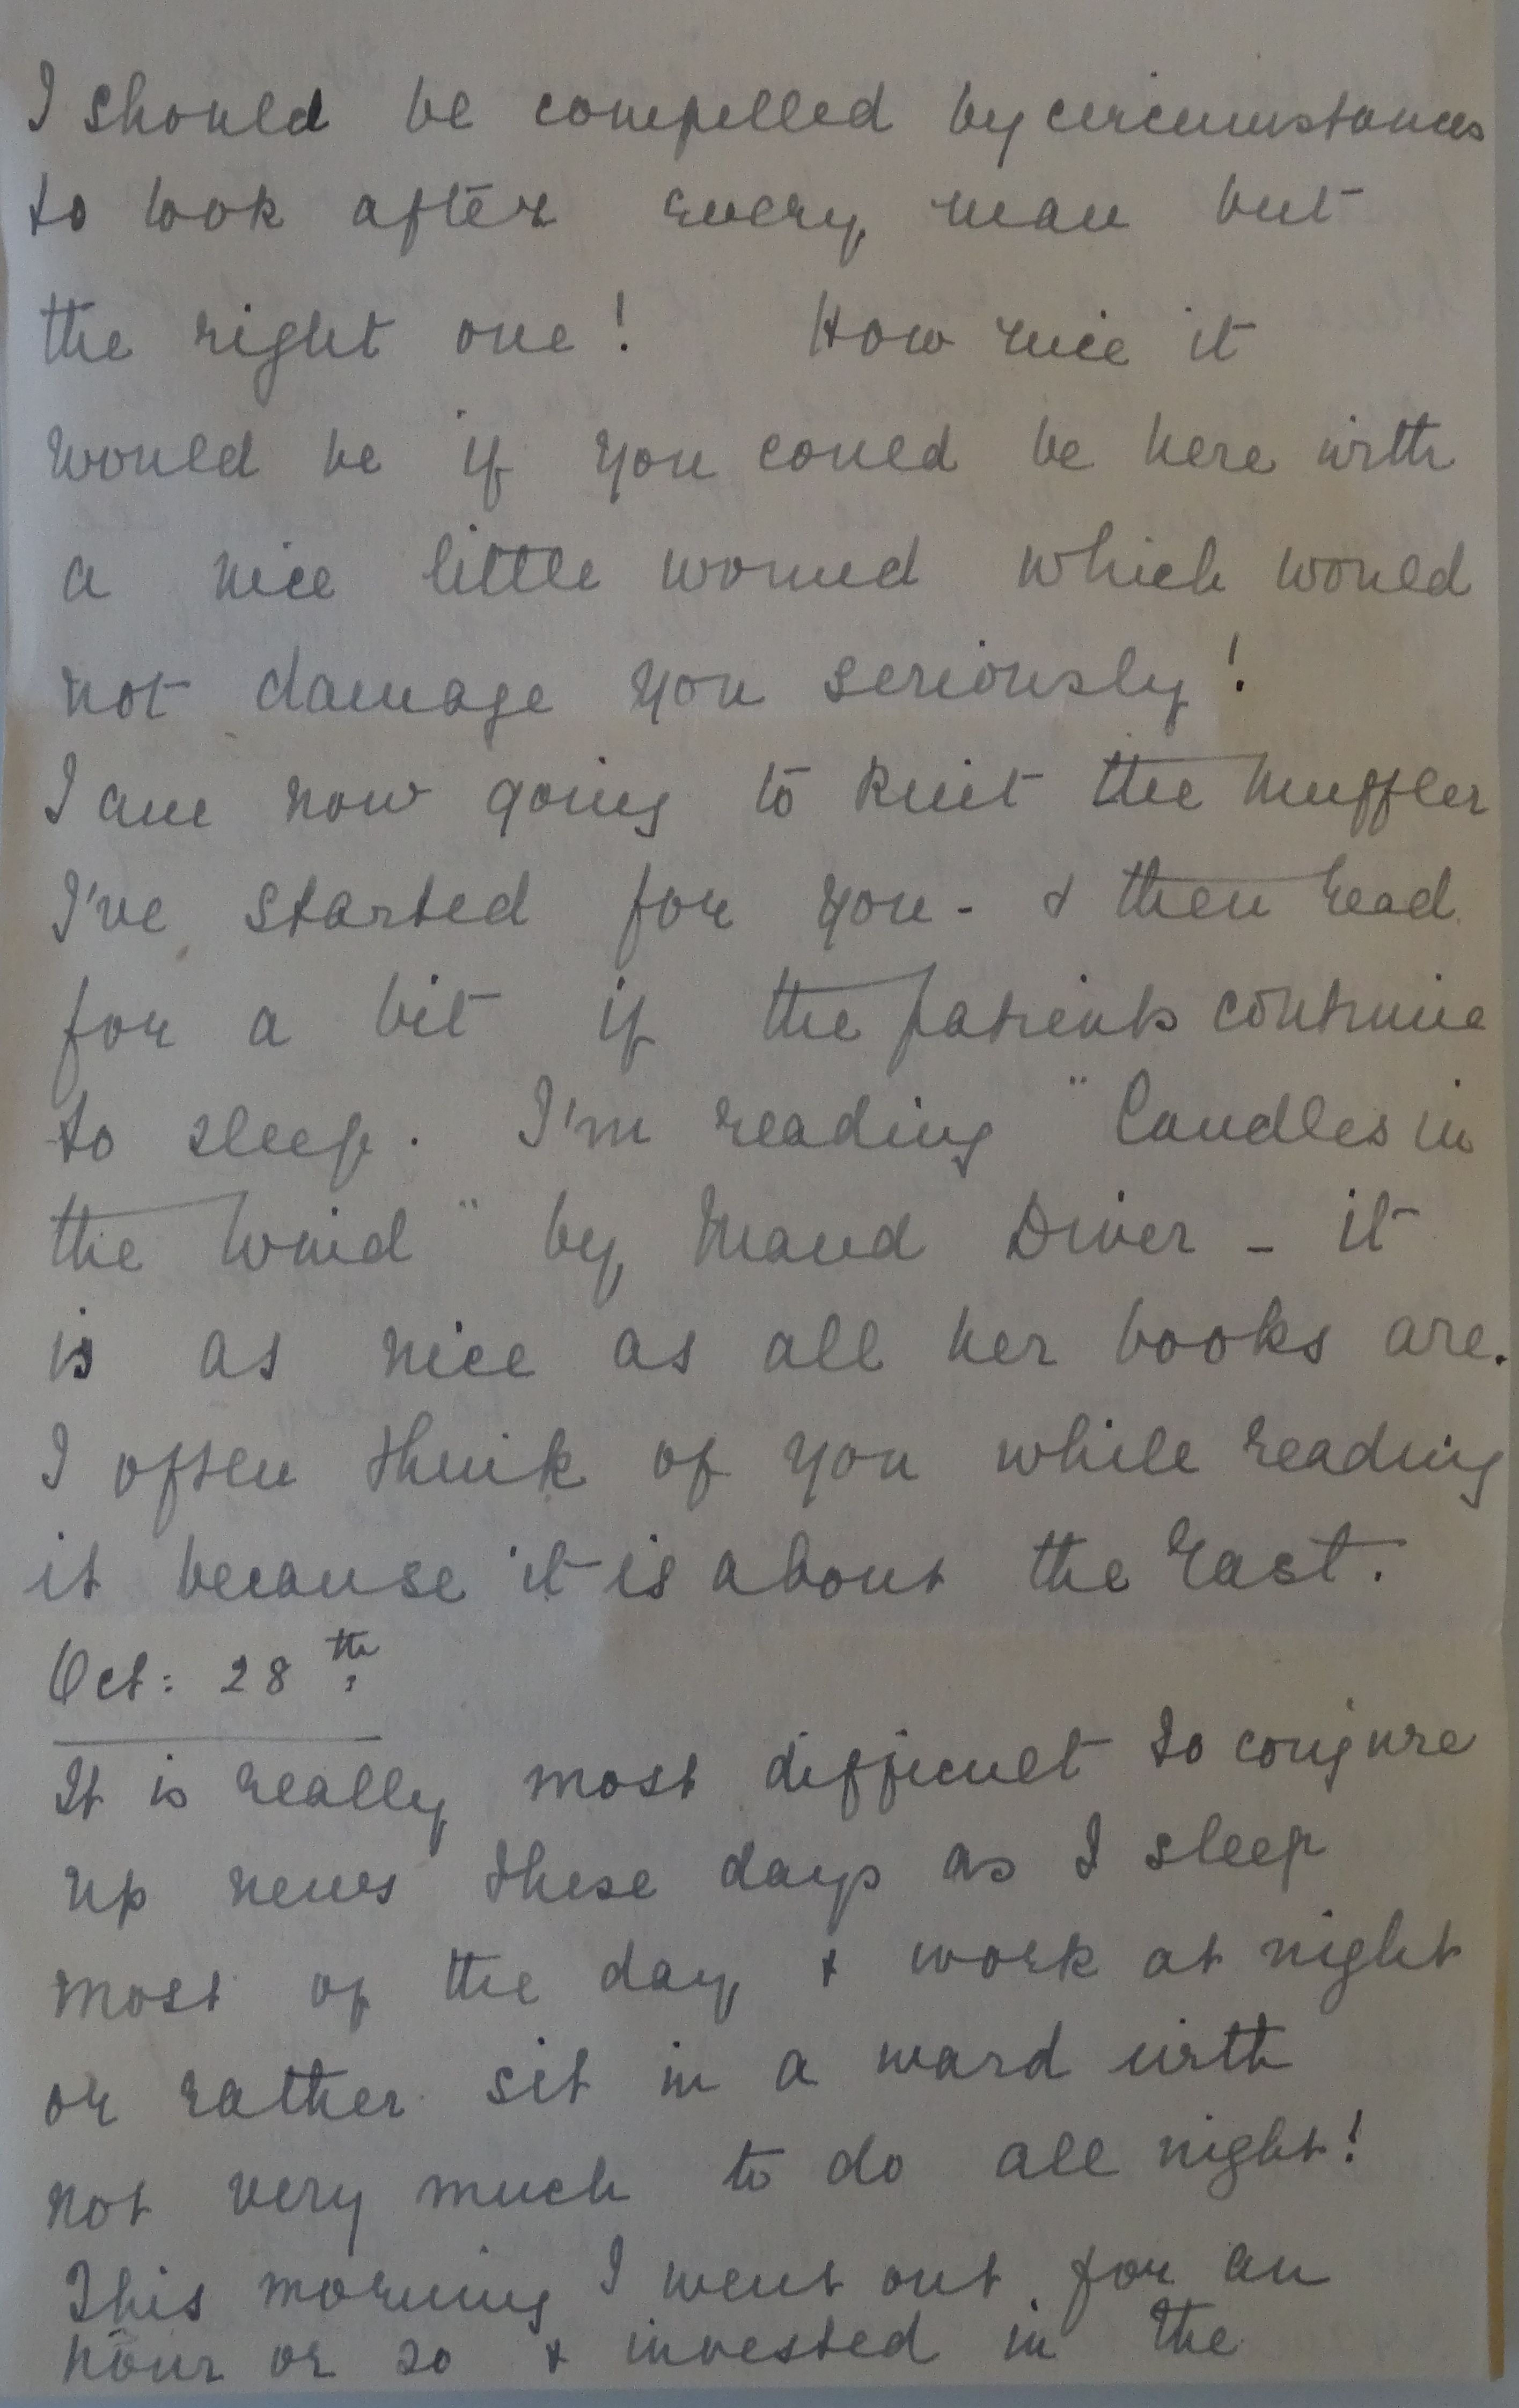 I should be compelled by circumstances
to look after every man but
the right one! How nice it
would be if you could be here with
a nice little wound which would
not damage you seriously!
I am now going to knit the muffler
I've started for you - & then read
for a bit if the patients continue
to sleep. I'm reading "Candles in
the Wind" by Maud Diver - it
is as nice as all her books are.
I often think of you while reading
it because it is about the East.
Oct: 28th
It is really most difficult to conjure
up news these days as I sleep
most of the day & work at night
or rather sit in a ward with
not very much to do all night!
This morning I went out for an
hour or so & invested in the